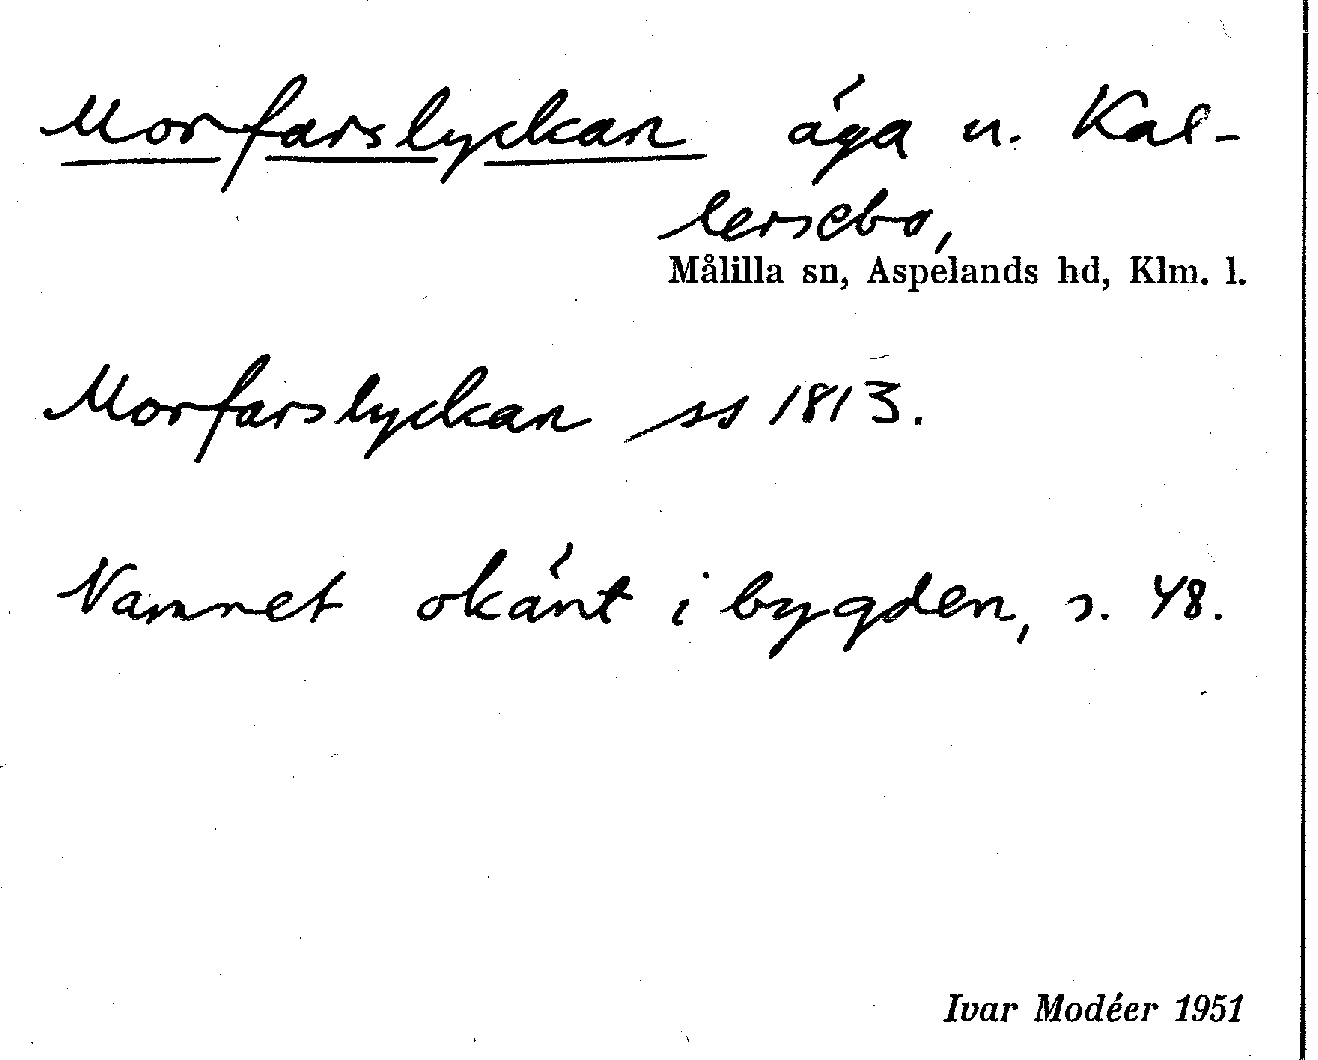 Morfarslyckan äga u. Kal-
lersebo,
Målilla sn, Aspelands hd, Klm. l.
Morfarslyckan ss 1813.
Namnet okänt i bygden, s. 48.
Ivar Modéer 1951